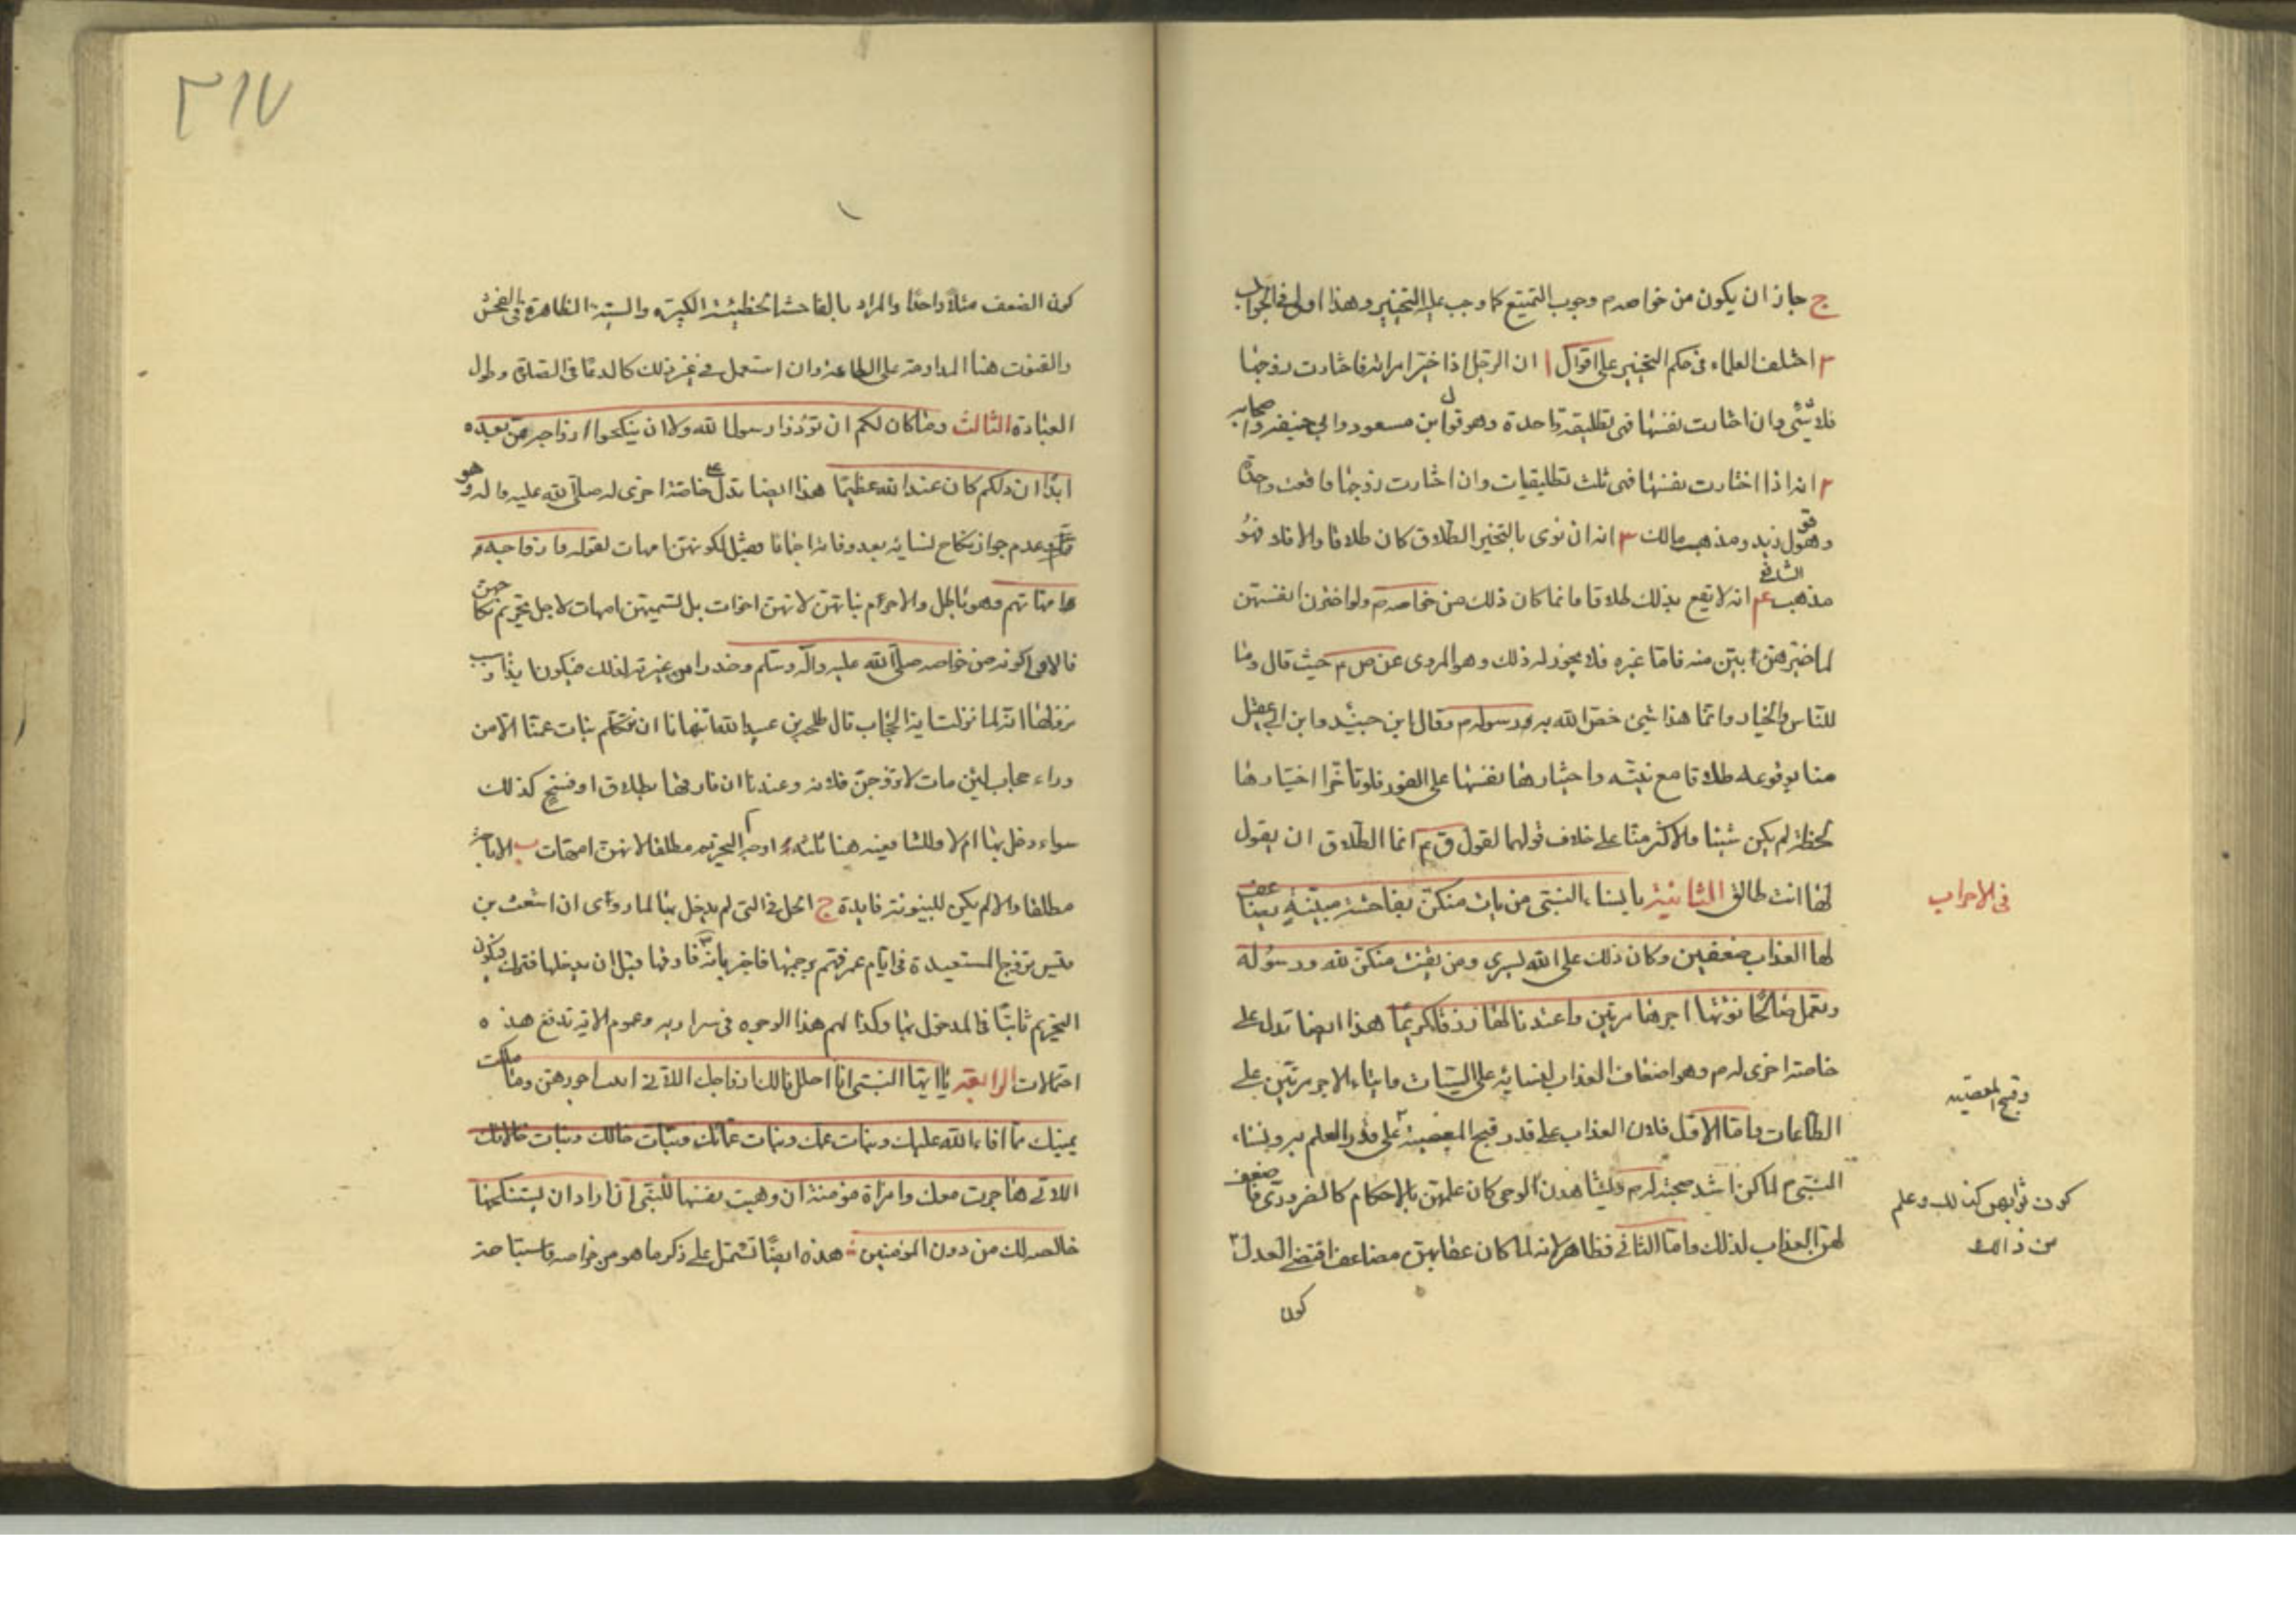 ج جاز ان يكون من خواصه م وجوب التمتيع كما وجب عليه التخيير وهذا اولى في الجواب
٢ اختلف العلماء في حكم التخيير على اقوال ١ ان الرجل اذا خير امراته فاختارت زوجها
فلا شئ وان اختارت نفسها فهى تطليقة واحدة وهو قول ابن مسعود وابي حنيفة واصحابه
٢ انه اذا اختارت نفسها فهى ثلث تطليقات وان اختارت زوجها فواقعت واحدة
وهو قول زيد ومذهب مالك ٣ انه ان نوى بالتخيير الطلاق كان طلاقا والا فلا فهو
مذهب الشافعي ٤ انه لا يقع بذلك طلاقا وانما كان ذلك من خواصه م ولو اخترن انفسهن
لما خيرهن ابين منه فاما غيره فلا يجوز له ذلك وهو المروى عن ص م حيث قال وما
للناس والخيار وانما هذا شئ خص الله به ورسوله م وقال ابن جنيد وابن ابي عقيل
منا بوقوعه طلاقا مع نيته واختيارها نفسها على الفور فلو تاخر اختيارها
لحظة لم يكن شيئا والاكثر منا على خلاف قولهما لقول ق م انما الطلاق ان يقول
لها انت طالق الثانية يا نساء النبى من يات منكن بفاحشة مبينة يضاعف
لها العذاب ضعفين وكان ذلك على الله يسيرا ومن يقنت منكن لله ورسوله
وتعمل صالحا نؤتها اجرها مرتين واعتدنا لها رزقا كريما هذا ايضا تدل على
خاصة اخرى له م وهو اضعاف العذاب لنسائه على السيئات وايتاء الاجر مرتين على
الطاعات واما الاول فلان العذاب على قدر قبح المعصية على قدر العلم به ونساء
النبى م لما كن اشد صحبة له م ويشاهدن الوحى كان علمهن بالاحكام كالضرورى فضعف
لهن العذاب لذلك واما الثاني فظاهر لانه لما كان عقابهن مضاعفا اقتضى العدل
كون
في الاحزاب
وقبح المعصية
كون ثوابهن كذلك وعلم
من ذالك
٢١٧
كون الضعف مثلا واحدا والمراد بالفاحشة الخطيئة الكبيرة والسيئة الظاهرة في الفحش
والقنوت هنا المداومة على الطاعة وان استعمل في غير ذلك كالدعاء في الصلوة وطول
العبادة الثالث وما كان لكم ان تؤذوا رسول الله ولا ان ينكحوا ازواجه من بعده
ابدا ان ذلكم كان عند الله عظيما هذا ايضا تدل على خاصة اخرى له صلى الله عليه واله وهو
عدم جواز نكاح نسائه بعد وفاته اجماعا وقيل لكونهن امهات لقوله وازواجه
امهاتهم وهو باطل والا حرم بناتهن لانهن اخوات بل تسميتهن امهات لاجل تحريم نكاحهن
فالاولى كونه من خواصه صلى الله عليه وآله وسلم من غيرته لذلك
نزولها انه لما نزلت اية الحجاب قال طلحة بن عبيد الله اينهانا ان نكلم بنات عمنا الا من
وراء حجاب لئن مات لاتزوجن فلانة وعندنا ان فارقها بطلاق او فسخ كذلك
سواء دخل بها ام لا وللشافعية هنا ثلثة اوجه ا التحريم مطلقا لانهن امهات ب الاباحة
مطلقا والا لم يكن للبينونة فايدة ج الحل في التى لم يدخل بها لما روى ان اشعث بن
قيس تزوج المستعيذة في ايام عمر فهم برجمها فاخبر بانه فارقها قبل ان يدخلها فترك فيكون
التحريم ثابتا في المدخول بها وكذا لهم هذا الوجوه في سراريه وعموم الاية تدفع هذه
احتمالات الرابعة يا ايها النبى انا احللنا لك ازواجك اللاتى اتيت اجورهن وما ملكت
يمينك مما افاء الله عليك وبنات عمك وبنات عماتك وبنات خالك وبنات خالاتك
اللاتى هاجرن معك وامراة مؤمنة ان وهبت نفسها للنبى ان اراد ان يستنكحها
خالصة لك من دون المؤمنين هذه ايضا تشتمل على ذكر ما هو من خواصه